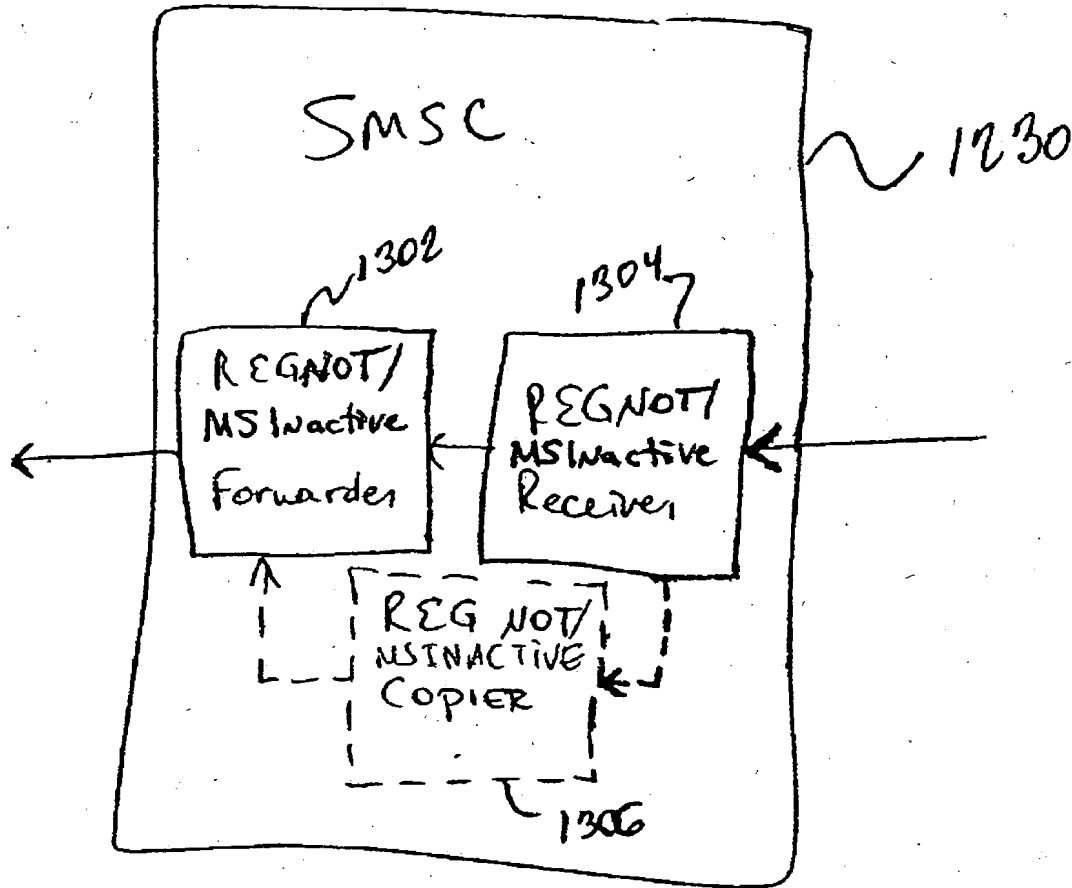 SMSC
1230
1302
1304
REGNOT/
MSInactive
Forwarder
REGNOT/
MSInactive
Receiver
REG NOT/
MSINACTIVE
COPIER
1306